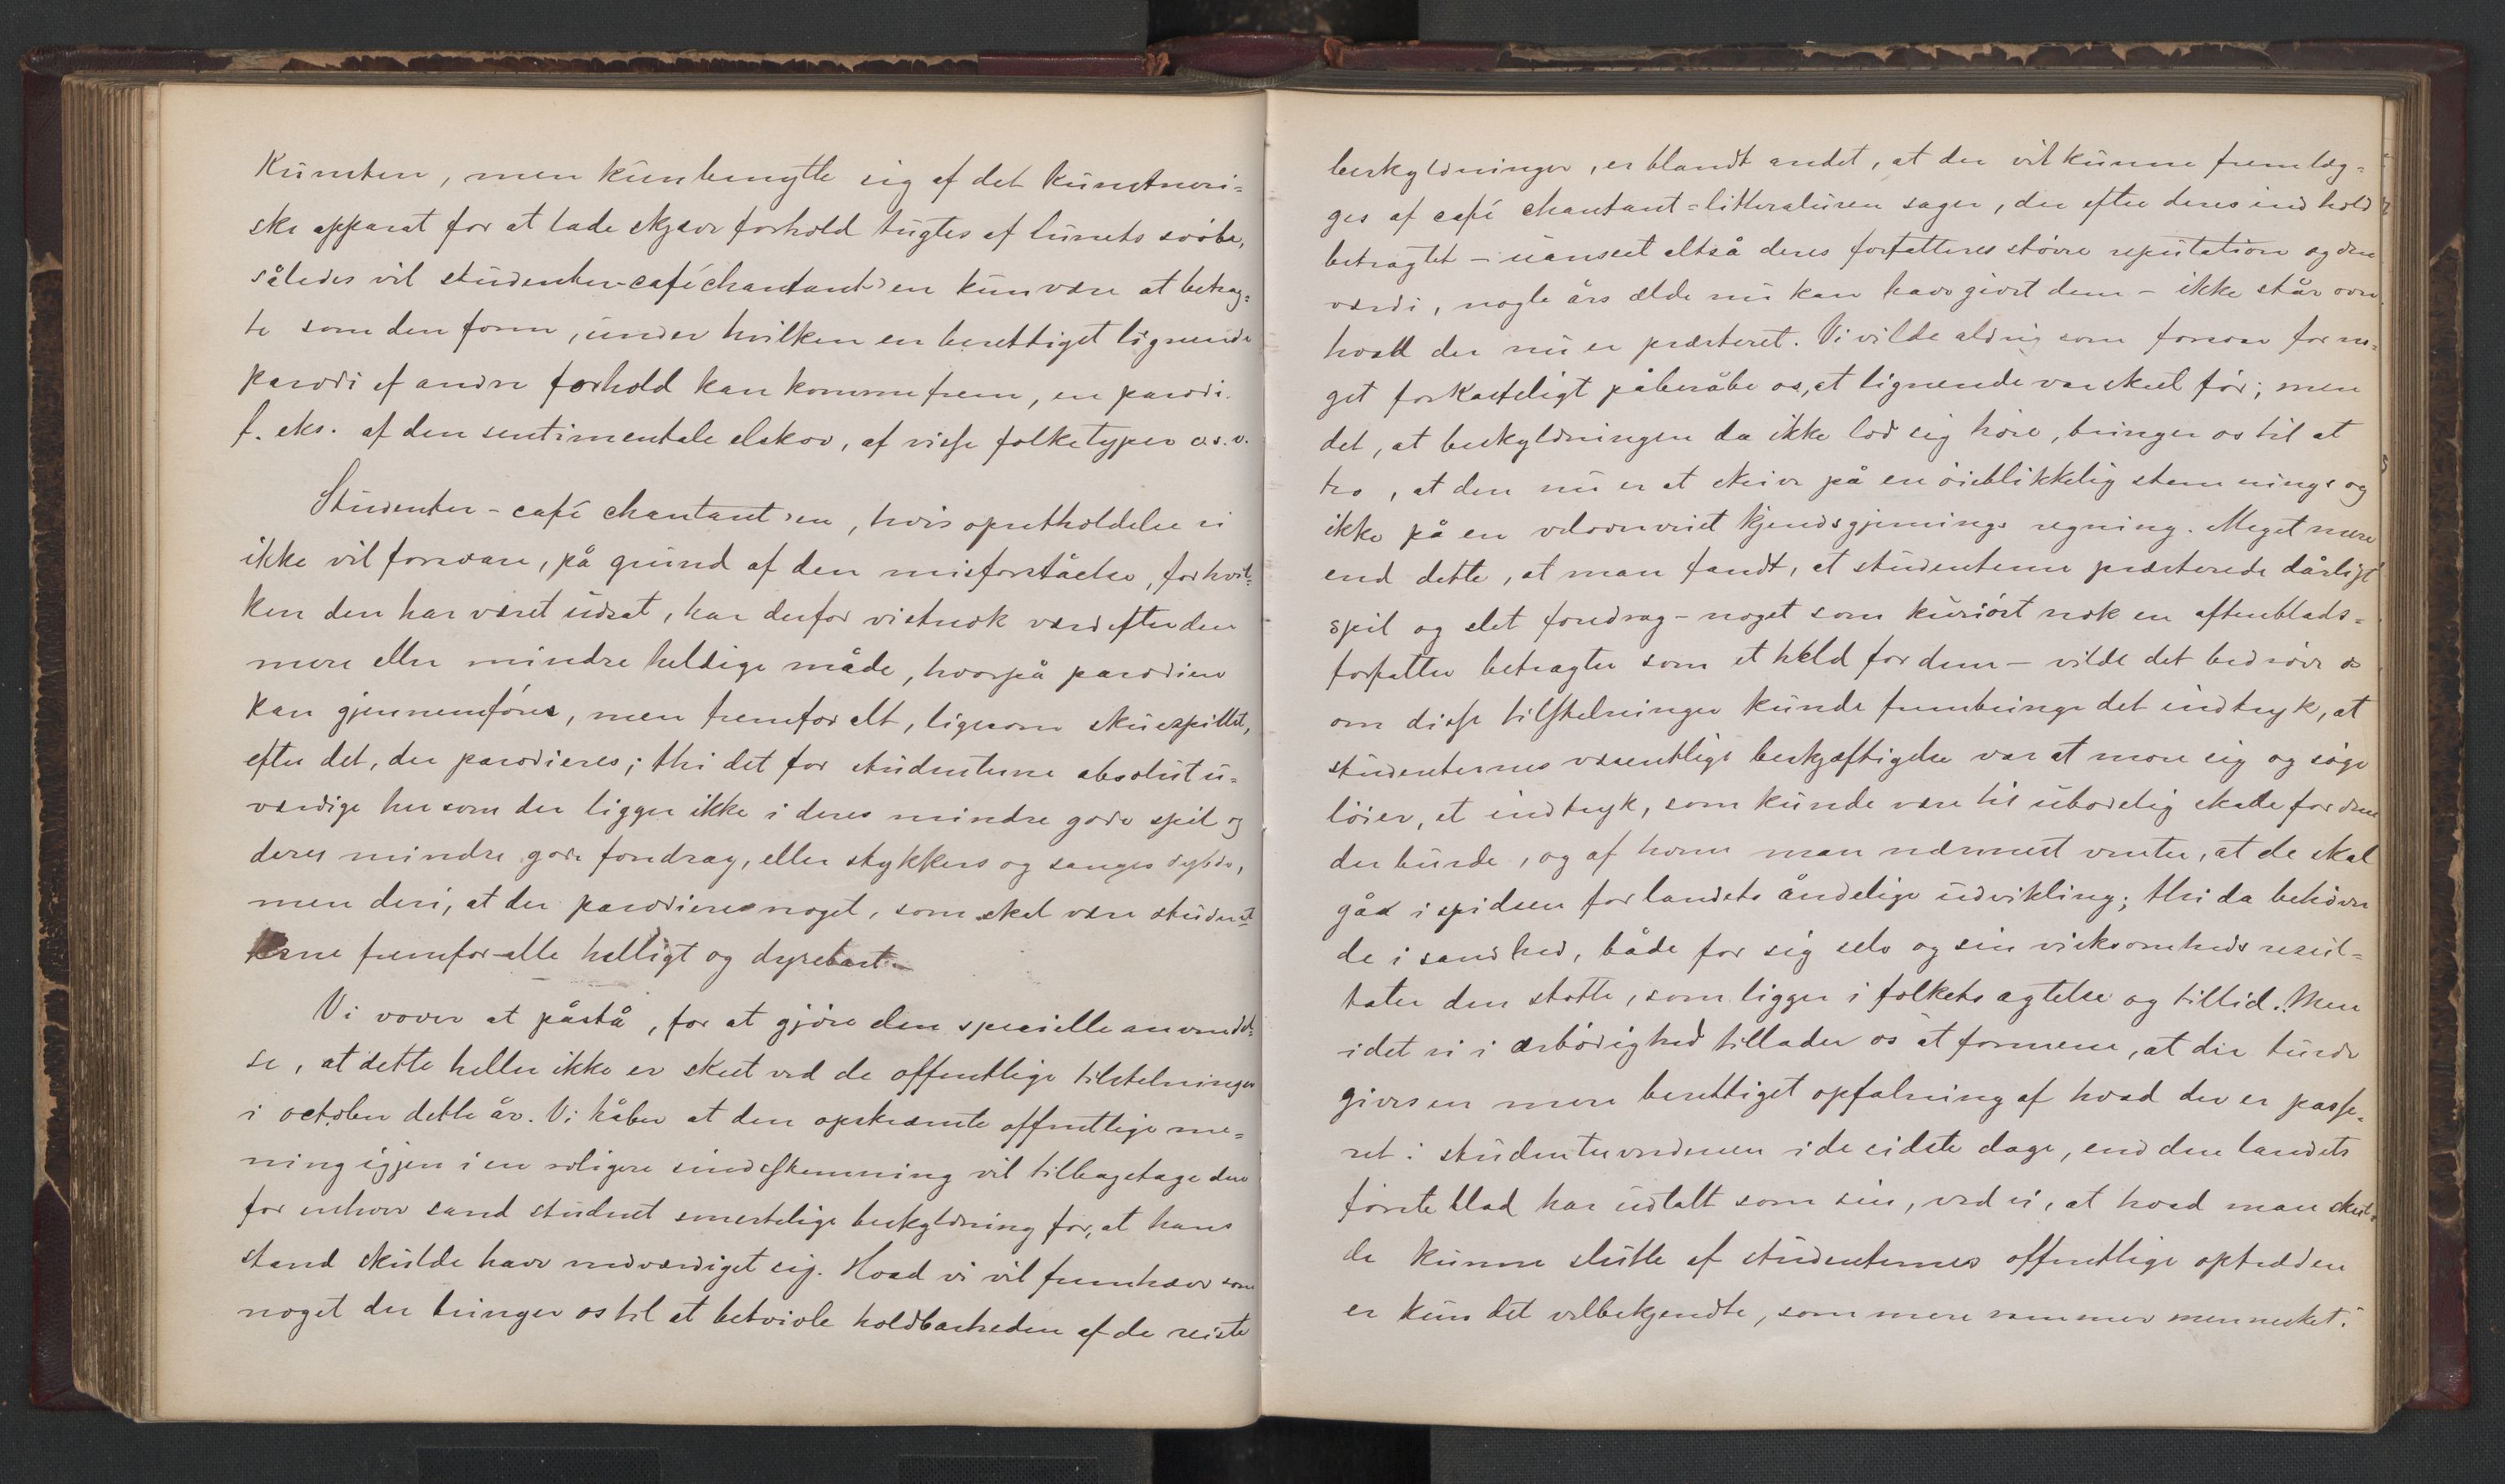 Kunsten, men kun benytte sig af det kunstneri-
ske apparat for at lade skjæve forhold tugtes af lunets svøbe,
således vil studenter-café chantant'en kun være at betrag-
te som den form, under hvilken en berettiget lignende
parodi af andre forhold kan komme frem, en parodi
f. eks. af den sentimentale elskov, af visse folketyper o.s.v.
Studenter-café chantant'en, hvis opretholdelse vi
ikke vil forsvare, på grund af den misforståelse, for hvil-
ken den har været udsat, har derfor vistnok værd efter den
mere eller mindre heldige måde, hvorpå parodien
kan gjennemføres, men fremfor alt, ligesom skuespillet,
efter det, der parodieres; thi det for studenterne absolut u-
værdige her som der ligger ikke i deres mindre gode spil og
deres mindre gode foredrag, eller stykkers og sanges dybde,
men deri, at der parodieres noget, som skal være student-
erne fremfor alle helligt og dyrebart.
Vi vover at påstå, for at gjøre den specielle anvendel-
se, at dette heller ikke er skeet ved de offentlige tilstelninger
i october dette år. Vi håber at den opskræmte offentlige me-
ning igjen i en roligere sindsstemning vil tilbagetage den
for enhver sand student smertelige beskyldning for, at hans
stand skulde have nedværdiget sig. Hvad vi vil fremhæve som
noget der bringer os til at betvivle holdbarheden af de reiste
beskyldninger, er blandt andet, at der vil kunne fremlæg-
ges af café chantant-litteraturen sager, der efter deres indhold
betragtet – uanseet altså deres forfatteres større reputation og den
værdi, nogle års ælde nu kan have givet dem – ikke står over
hvad der nu er præsteret. Vi vilde aldrig som forsvar for no-
get forkasteligt påberåbe os, at lignende var skeet før; men
det, at beskyldningen da ikke lod sig høre, bringer os til at
tro, at den nu er at skrive på en øieblikkelig stemnings og
ikke på en velovervejet kjendsgjernings regning. Meget mere
end dette, at man fandt, at studenterne præsterede dårligt
spil og slet foredrag – noget som kuriøst nok en aftenblads-
forfatter betragter som et held for dem – vilde det bedrøve os
om disse tilstelninger kunde frembringe det indtryk, at
studenternes væsentlige beskjæftigelse var at more sig og søge
løier, et indtryk, som kunde være til ubodelig skade for dem
der burde, og af hvem man nærmest venter, at de skal
gåa i spidsen for landets åndelige udvikling; thi da behøver
de i sandhed, både for sig selv og sin virksomheds resul-
tater den støtte, som ligger i folkets agtelse og tillid. Men
idet vi i ærbødighed tillader os at formene, at der turde
gives en mere berettiget opfatning af hvad der er passe-
ret i studenterverdenen i de sidste dage, end den landets
første blad har udtalt som sin, ved vi, at hvad man skul-
de kunne slutte af studenternes offentlige optræden
er kun det velbekjendte, som mere rammer mennesket: